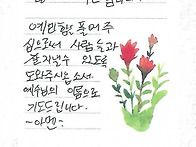 예민함을 품어주
심으로써 사람들과
잘 지낼수 있도록
도와주시옵소서.
예수님의 이름으로
기도드립니다.
-아멘-